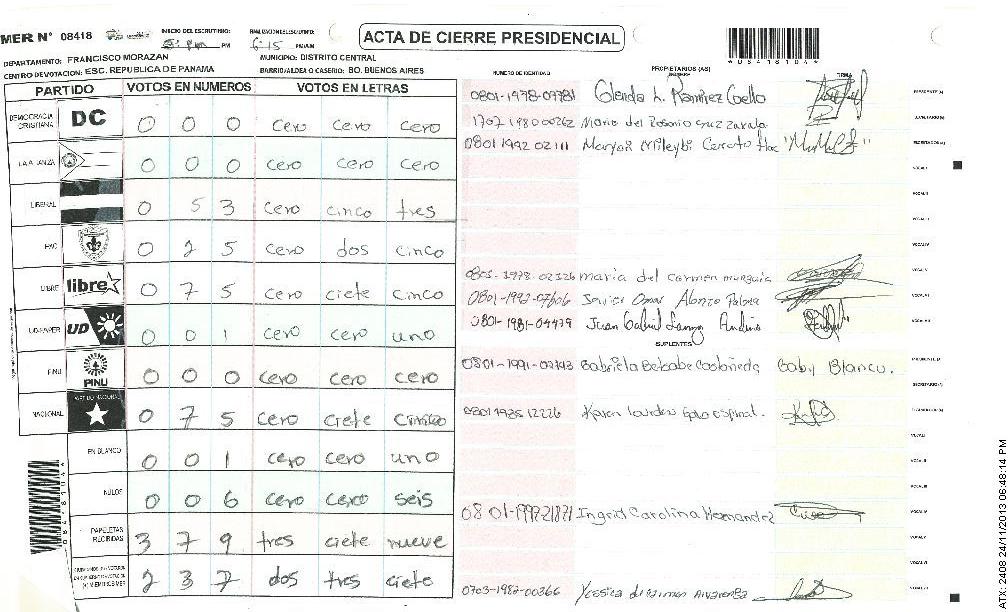 MER N° 08418
INICIO DEL ESCRUTINIO: PM
FINALIZACION DEL ESCRUTINIO: 6:15 PM/AM
ACTA DE CIERRE PRESIDENCIAL
*084184*
DEPARTAMENTO: FRANCISCO MORAZAN
MUNICIPIO: DISTRITO CENTRAL
CENTRO DE VOTACION: ESC. REPUBLICA DE PANAMA
BARRIO/ALDEA O CASERIO: BO. BUENOS AIRES
PARTIDO VOTOS EN NUMEROS VOTOS EN LETRAS
DEMOCRACIA CRISTIANA DC 0 0 0 cero cero cero
LA ALIANZA 0 0 0 cero cero cero
LIBERAL 0 53 cero cinco tres
PAC 0 2 5 cero dos cinco
LIBRE libre 0 7 5 cero ciete cinco
UD-FAPER UD 0 0 1 cero cero uno
PINU PINU 0 0 0 cero cero cero
NACIONAL PARTIDO NACIONAL 0 7 5 cero ciete cinco
EN BLANCO 0 0 1 cero cero uno
NULOS 0 0 6 cero cero seis
PAPELETAS RECIBIDAS 3 7 9 tres ciete nueve
2 3 7 dos tres ciete
NUMERO DE IDENTIDAD PROPIETARIOS (AS) NOMBRE FIRMA
Glenda L. Ramirez Coello PRESIDENTE (A)
1707 1980 00262 Maria del Rosario Cruz Zavala SECRETARIO (A)
0801 1992 02111 ESCRUTADOR (A)
VOCAL I
VOCAL II
VOCAL III
VOCAL IV
maria del carmen VOCAL V
Omar Alonzo VOCAL VI
0801-1981-04479 Juan Gabriel VOCAL VII
SUPLENTES
Gabriela Betsabe Castañeda Gaby Blanco. PRESIDENTE (A)
SECRETARIO (A)
Karen Lourdes espinal. ESCRUTADOR (A)
VOCAL I
VOCAL II
VOCAL III
Ingrid Carolina Hernandez VOCAL IV
VOCAL V
VOCAL VI
0703-1982-00366 VOCAL VII
*084184*
ATX: 2408 24/11/2013 06:48:14 PM